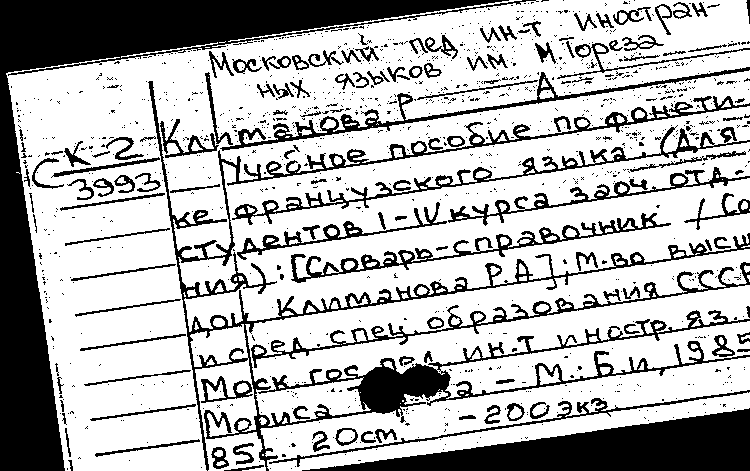 Московский пед. ин-т иностран-
ных языков им. М. Тореза
Климанова, Р А
СК-2
3993
Учебное пособие по фонети-
ке французского языка: (Для
студентов I-IV курса заоч. отд-
ния): [Словарь-справочник / Со
доц. Климанова Р.А]; М-во высш
и сред. спец. образования СССР
Моск. гос. пед. ин-т иностр. яз. и
Мориса – М.: Б.и, 1985
85с.; 20см. – 200 экз.